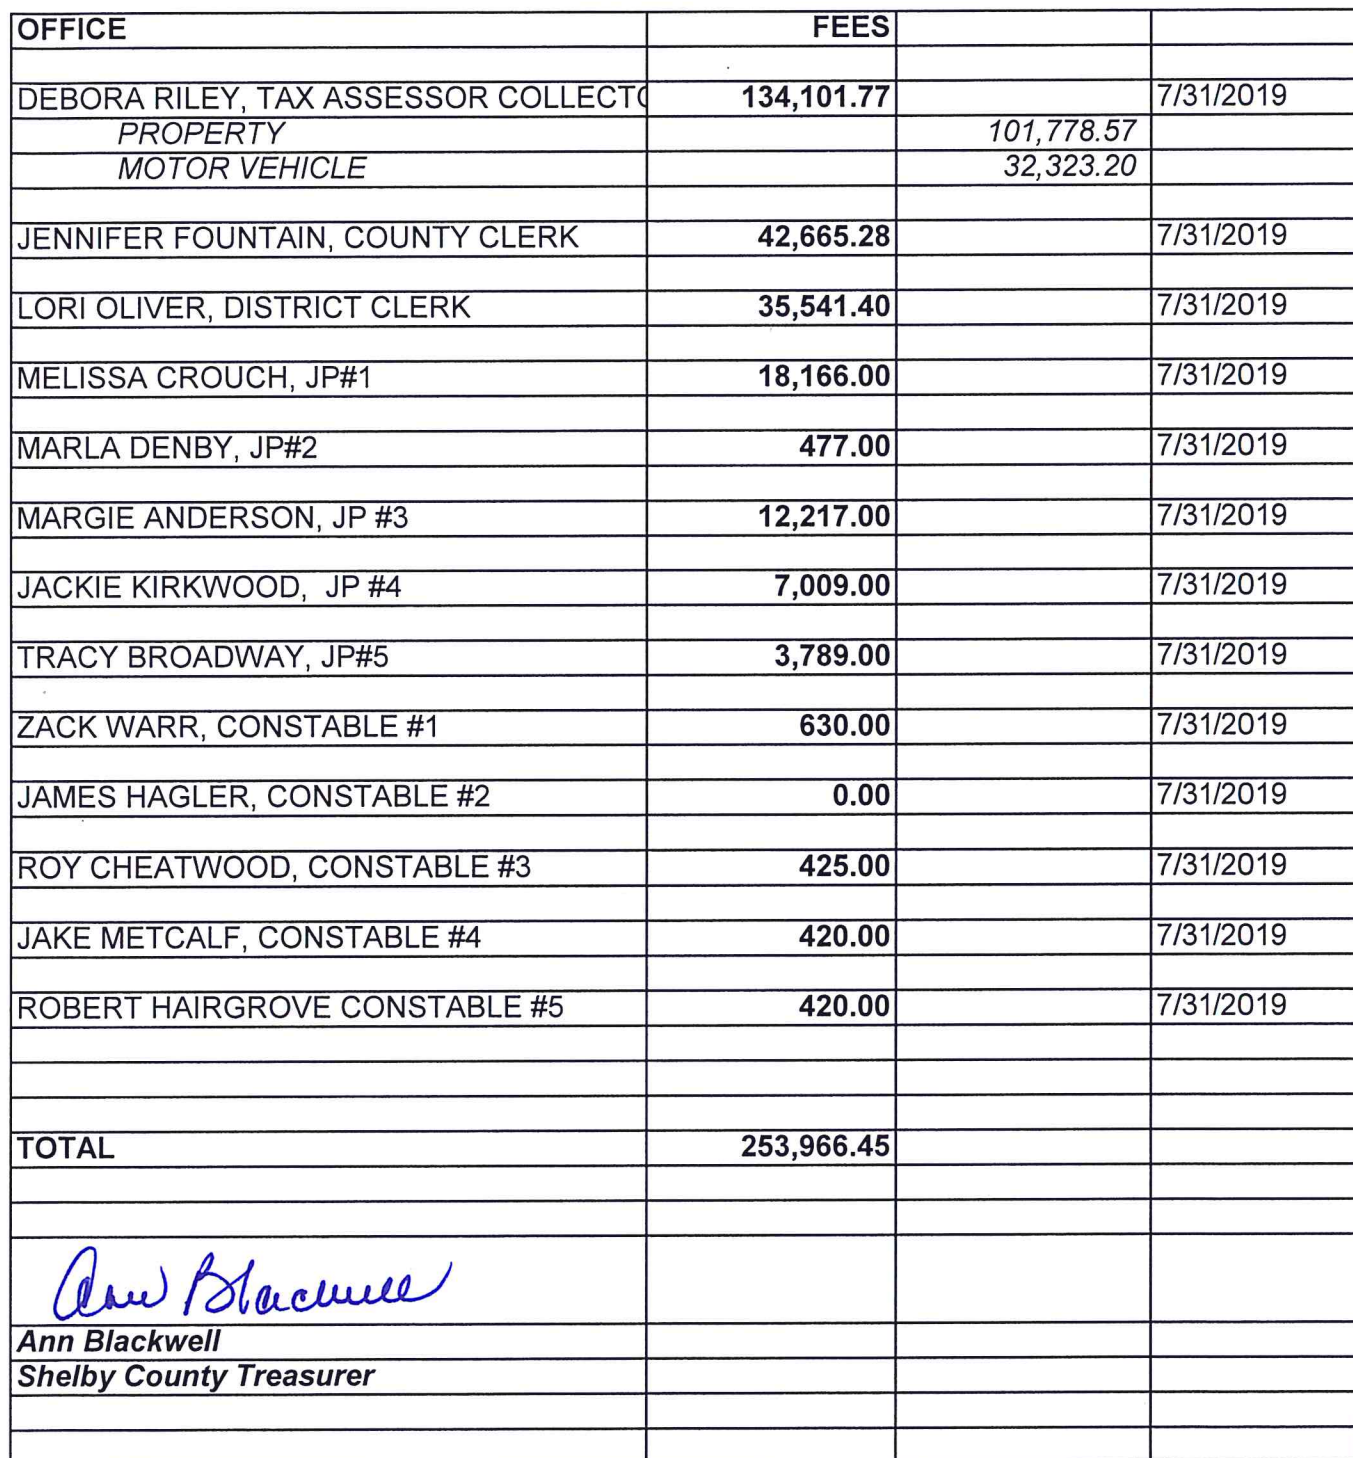 OFFICE FEES
DEBORA RILEY, TAX ASSESSOR COLLECTO 134,101.77 7/31/2019
PROPERTY 101,778.57
MOTOR VEHICLE 32,323.20
JENNIFER FOUNTAIN, COUNTY CLERK 42,665.28 7/31/2019
LORI OLIVER, DISTRICT CLERK 35,541.40 7/31/2019
MELISSA CROUCH, JP#1 18,166.00 7/31/2019
MARLA DENBY, JP#2 477.00 7/31/2019
MARGIE ANDERSON, JP #3 12,217.00 7/31/2019
JACKIE KIRKWOOD, JP #4 7,009.00 7/31/2019
TRACY BROADWAY, JP#5 3,789.00 7/31/2019
ZACK WARR, CONSTABLE #1 630.00 7/31/2019
JAMES HAGLER, CONSTABLE #2 0.00 7/31/2019
ROY CHEATWOOD, CONSTABLE #3 425.00 7/31/2019
JAKE METCALF, CONSTABLE #4 420.00 7/31/2019
ROBERT HAIRGROVE CONSTABLE #5 420.00 7/31/2019
TOTAL 253,966.45
Ann Blackwell
Ann Blackwell
Shelby County Treasurer